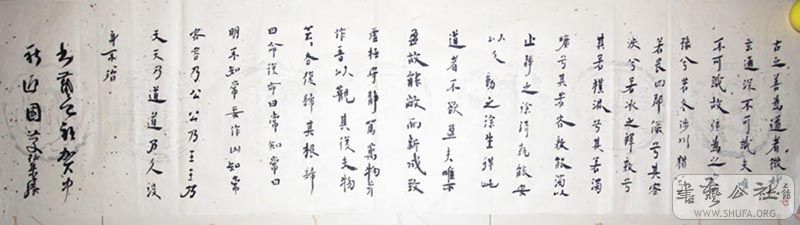 古之善為道者微妙
玄通深不可識夫唯
不可識故强為之
豫兮若冬涉川猶
若畏四鄰儼兮其容
涣兮若冰之釋敦兮
其若樸混兮其若濁
曠兮其若谷孰能濁以
止靜之徐清孰能安
以久動之徐生保此
道者不欲盈夫唯不
盈故能敝而新成致
虛極守靜篤萬物並
作吾以觀其復夫物
芸芸各復歸其根歸
曰命復命曰常知常曰
明不知常妄作凶知常
容容乃公公乃王王乃
天天乃道道乃久没
不殆
書藝公社
WWW.SHUFA.ORG